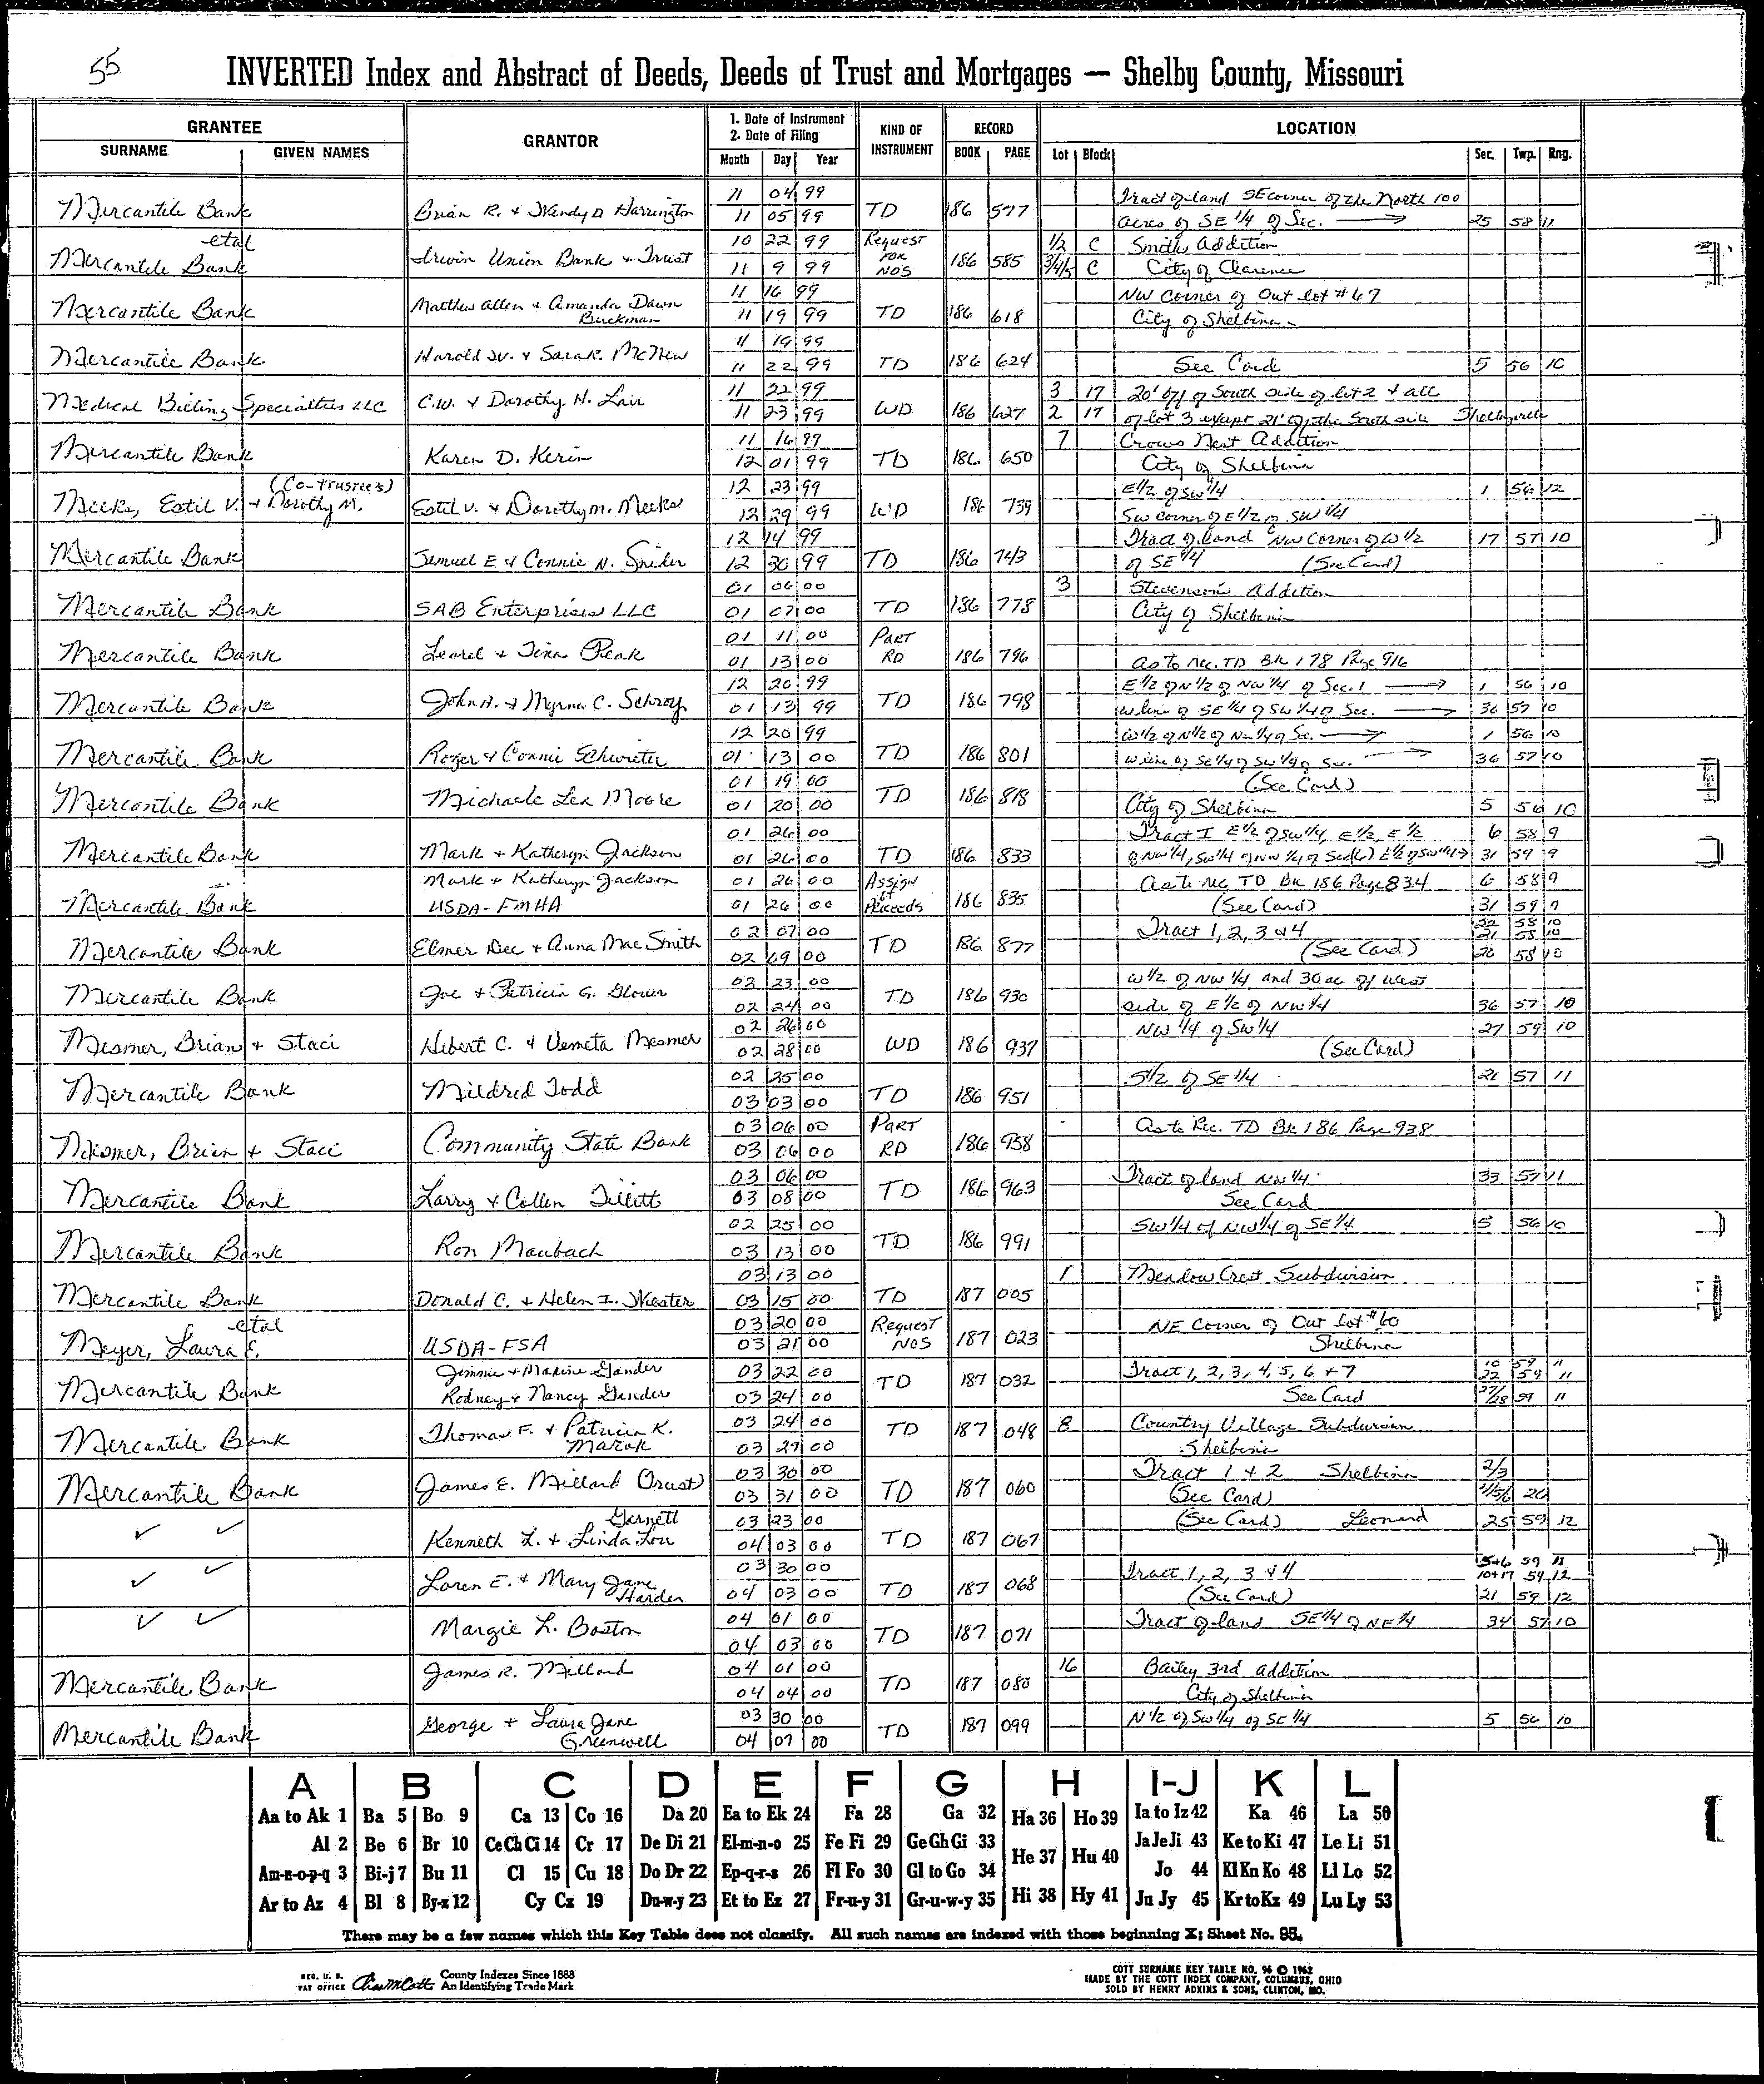 55
INVERTED Index and Abstract of Deeds, Deeds of Trust and Mortgages — Shelby County, Missouri
GRANTEE
SURNAME GIVEN NAMES
GRANTOR
1. Date of Instrument
2. Date of Filing
Month Day Year
KIND OF INSTRUMENT
RECORD
BOOK PAGE
LOCATION
Lot Block Sec. Twp. Rng.
11 04 99 Tract of land SE corner of the North 100
Mercantile Bank Brian R. + Wendy D Harrington 11 05 99 TD 186 577 acres of SE 1/4 of Sec. → 25 58 11
etal 10 22 99 Request 1/2 C Smiths Addition
Mercantile Bank Irwin Union Bank + Trust 11 9 99 FOR NOS 186 585 3/4/5 C City of Clarence
Matthew Allen + Amanda Dawn 11 16 99 NW Corner of Out lot #67
Mercantile Bank Buckman 11 19 99 TD 186 618 City of Shelbina
11 19 99
Mercantile Bank Harold W. + Sara R. McNew 11 22 99 TD 186 624 See Card 5 56 10
11 22 99 3 17 20' off of South side of lot 2 + all
Medical Billing Specialties LLC C.W. + Dorothy N. Lair 11 23 99 WD 186 627 2 17 of lot 3 except 21' off the South side Shelbyville
11 16 99 7 Crows Nest Addition
Mercantile Bank Karen D. Kerin 12 01 99 TD 186 650 City of Shelbina
(Co-trustees) 12 23 99 E1/2 of SW1/4 1 56 12
Meeks, Estil V. + Dorothy M. Estil V. + Dorothy M. Meeks 12 29 99 WD 186 739 SW corner of E1/2 of SW 1/4
12 14 99 Tract of land NW Corner of W 1/2 17 57 10
Mercantile Bank Samuel E + Connie N. Snider 12 30 99 TD 186 743 of SE 1/4 (See Card)
01 06 00 3 Stevenson's Addition
Mercantile Bank SAB Enterprises LLC 01 07 00 TD 186 778 City of Shelbina
01 11 00 PART
Mercantile Bank + Tina Peak 01 13 00 RD 186 796 as to rec. TD Bk 178 Page 916
12 20 99 E 1/2 of N 1/2 of NW 1/4 of Sec. 1 → 1 56 10
Mercantile Bank John H. + Myrna C. 01 13 99 TD 186 798 W line of SE 1/4 of SW 1/4 of Sec. → 36 57 10
12 20 99 W 1/2 of N 1/2 of NW 1/4 of Sec. → 1 56 10
Mercantile Bank Roger + Connie 01 13 00 TD 186 801 W line of SE 1/4 of SW 1/4 of Sec. → 36 57 10
01 19 00 (See Card)
Mercantile Bank Michaele Lea Moore 01 20 00 TD 186 818 City of Shelbina 5 56 10
01 26 00 Tract I E 1/2 of SW 1/4, E 1/2, E 1/2 6 58 9
Mercantile Bank Mark + Katheryn Jackson 01 26 00 TD 186 833 of NW 1/4, SW 1/4 of NW 1/4 of Sec(6) E 1/2 of SW 1/4 → 31 59 9
Mark + Katheryn Jackson 01 26 00 Assign of As to rec TD Bk 186 Page 834 6 58 9
Mercantile Bank USDA-FMHA 01 26 00 Proceeds 186 835 (See Card) 31 59 9
02 07 00 Tract 1, 2, 3 + 4 22 58 10
21 58 10
Mercantile Bank Elmer Dee + Anna Mae Smith 02 09 00 TD 186 877 (See Card) 20 58 10
02 23 00 W 1/2 of NW 1/4 and 30 ac off West
Mercantile Bank Joe + Patricia G. Glover 02 24 00 TD 186 930 side of E 1/2 of NW 1/4 36 57 10
02 26 00 NW 1/4 of SW 1/4 27 59 10
Mesmer, Brian + Staci Hibert C. + Vemeta Mesmer 02 28 00 WD 186 937 (See Card)
02 25 00 S 1/2 of SE 1/4 21 57 11
Mercantile Bank Mildred Todd 03 03 00 TD 186 951
03 06 00 PART As to Rec. TD Bk 186 Page 938
Mesmer, Brian + Staci Community State Bank 03 06 00 RD 186 958
03 06 00 Tract of land NW 1/4 33 57 11
Mercantile Bank Larry + Collen Tillitt 03 08 00 TD 186 963 See Card
02 25 00 SW 1/4 of NW 1/4 of SE 1/4 5 56 10
Mercantile Bank Ron Maubach 03 13 00 TD 186 991
03 13 00 1 Meadow Crest Subdivision
Mercantile Bank Donald C. + Helen I. Wester 03 15 00 TD 187 005
etal 03 20 00 Request NE Corner of Out Lot #60
Meyer, Laura E. USDA-FSA 03 21 00 NOS 187 023 Shelbina
Jimmie + Maxine Gander 03 22 00 Tract 1, 2, 3, 4, 5, 6 + 7 10 59 11
22 59 11
Mercantile Bank Rodney + Nancy Gander 03 24 00 TD 187 032 See Card 27/28 59 11
Thomas F. + Patricia K. 03 24 00 8 Country Village Subdivision
Mercantile Bank Marak 03 29 00 TD 187 048 Shelbina
03 30 00 Tract 1 + 2 Shelbina 2/3
Mercantile Bank James E. Millard (Trust) 03 31 00 TD 187 060 (See Card)
Garnett 03 23 00 (See Card) Leonard 25 59 12
✓ ✓ Kenneth L. + Linda Lou 04 03 00 TD 187 067
03 30 00 Tract 1, 2, 3 + 4 5+6 59 11
10+17 59 12
✓ ✓ Loren E. + Mary Jane Harden 04 03 00 TD 187 068 (See Card) 21 59 12
04 01 00 Tract of land SE 1/4 of NE 1/4 34 57 10
✓ ✓ Margie L. Baston 04 03 00 TD 187 071
04 01 00 16 Bailey 3rd Addition
Mercantile Bank James R. Millard 04 04 00 TD 187 080 City of Shelbina
George + Laura Jane 03 30 00 N 1/2 of SW 1/4 of SE 1/4 5 56 10
Mercantile Bank Greenwell 04 07 00 TD 187 099
A B C D E F G H I-J K L
Aa to Ak 1 Ba 5 Bo 9 Ca 13 Co 16 Da 20 Ea to Ek 24 Fa 28 Ga 32 Ha 36 Ho 39 Ia to Iz 42 Ka 46 La 50
Al 2 Be 6 Br 10 Ce Ch Ci 14 Cr 17 De Di 21 El-m-n-o 25 Fe Fi 29 Ge Gh Gi 33 He 37 Hu 40 Ja Je Ji 43 Ke to Ki 47 Le Li 51
Am-n-o-p-q 3 Bi-j 7 Bu 11 Cl 15 Cu 18 Do Dr 22 Ep-q-r-s 26 Fl Fo 30 Gl to Go 34 Hi 38 Hy 41 Jo 44 Kl Kn Ko 48 Ll Lo 52
Ar to Az 4 Bl 8 By-z 12 Cy Cz 19 Du-w-y 23 Et to Ez 27 Fr-u-y 31 Gr-u-w-y 35 Ju Jy 45 Kr to Kz 49 Lu Ly 53
There may be a few names which this Key Table does not classify. All such names are indexed with those beginning X; Sheet No. 95.
REG. U. S. PAT OFFICE County Indexes Since 1888
An Identifying Trade Mark
COTT SURNAME KEY TABLE NO. 96 © 1962
MADE BY THE COTT INDEX COMPANY, COLUMBUS, OHIO
SOLD BY HENRY ADKINS & SONS, CLINTON, MO.